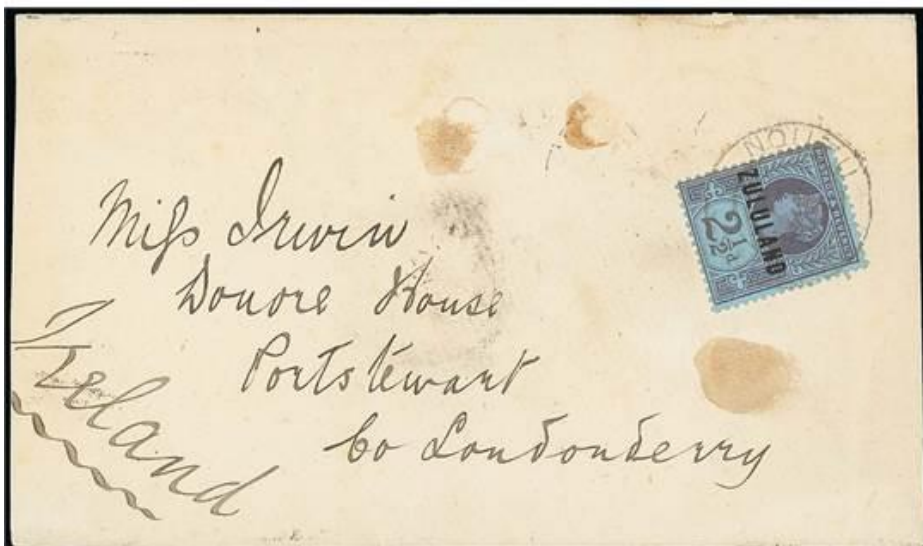 Miss Irwin
Donore House
Portstewart
Co Londonderry
Ireland
ZULULAND
2½d